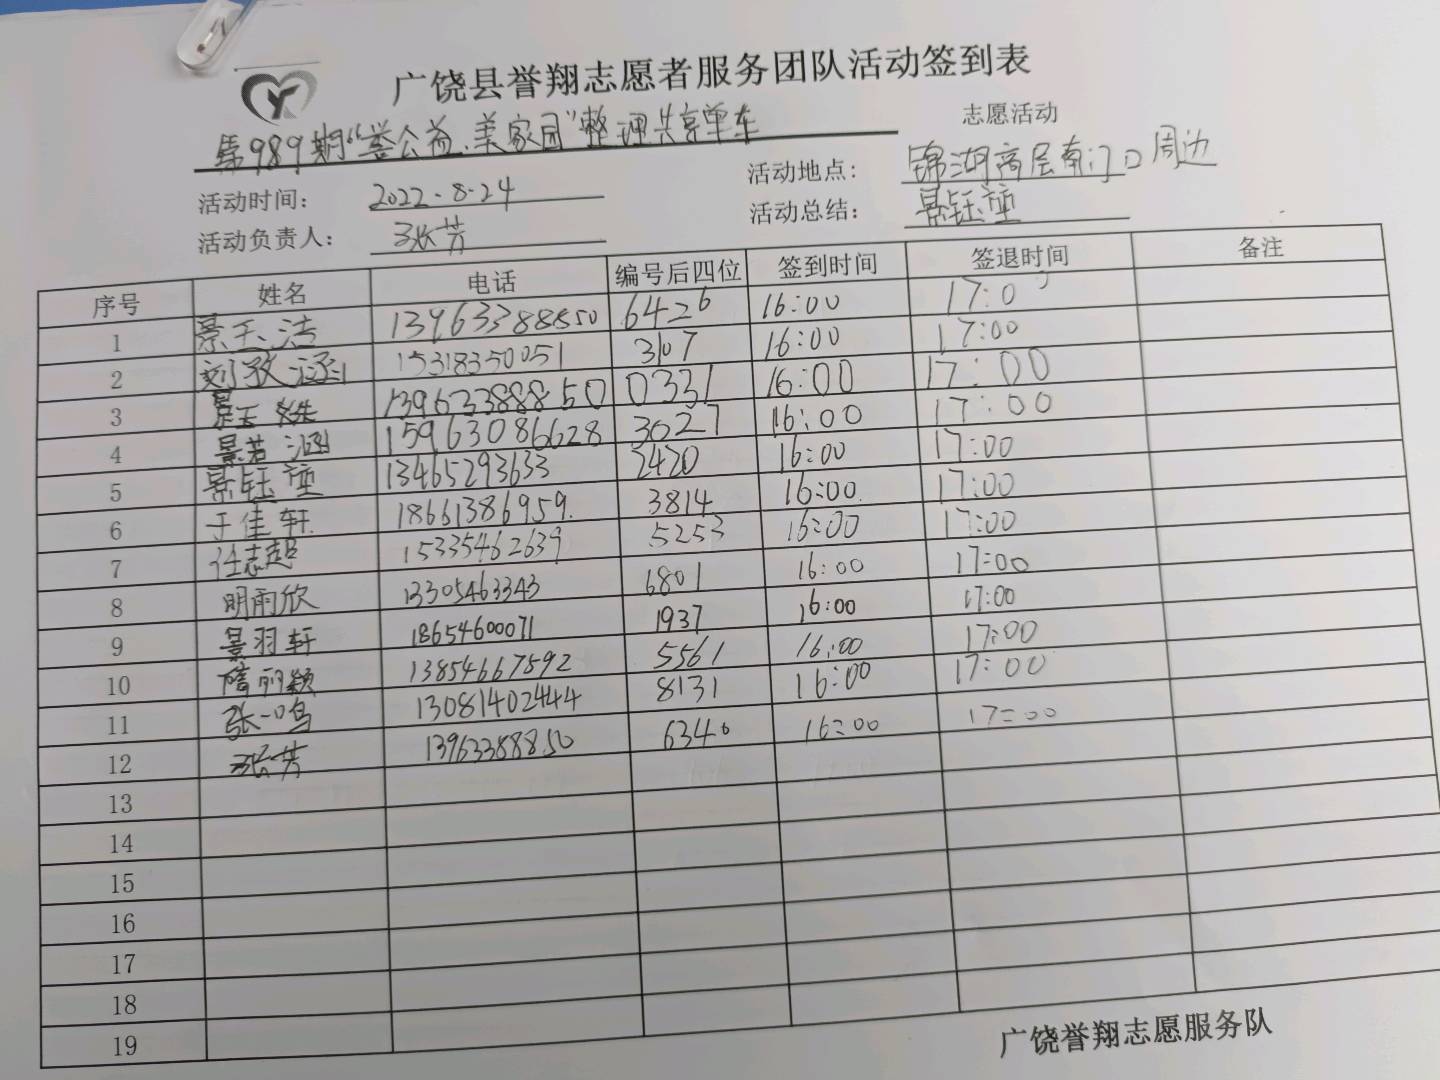 广饶县誉翔志愿者服务团队活动签到表
第989期"誉公益、美家园"整理共享单车 志愿活动
活动时间: 2022-8-24 活动地点: 锦湖高层南门口周边
活动负责人: 张芳 活动总结: 景钰
序号 姓名 电话 编号后四位 签到时间 签退时间 备注
1 景玉洁 139633888850 6426 16:00 17:00
2 刘孜涵 15318350051 3107 16:00 17:00
3 景玉姝 13963388850 0331 16:00 17:00
4 景芳涵 15963086628 3027 16:00 17:00
5 景钰 13465293633 2420 16:00 17:00
6 于佳轩 18661386959. 3814 16:00 17:00
7 任志超 15335462639 5253 16:00 17:00
8 明雨欣 13305463343 6801 16:00 17:00
9 景羽轩 18654600071 1937 16:00 17:00
10 隋丽颖 13854667592 5561 16:00 17:00
11 张一鸣 13081402444 8131 16:00 17:00
12 张芳 13963388850 6340 16:00 17:00
13
14
15
16
17
18
19
广饶誉翔志愿服务队